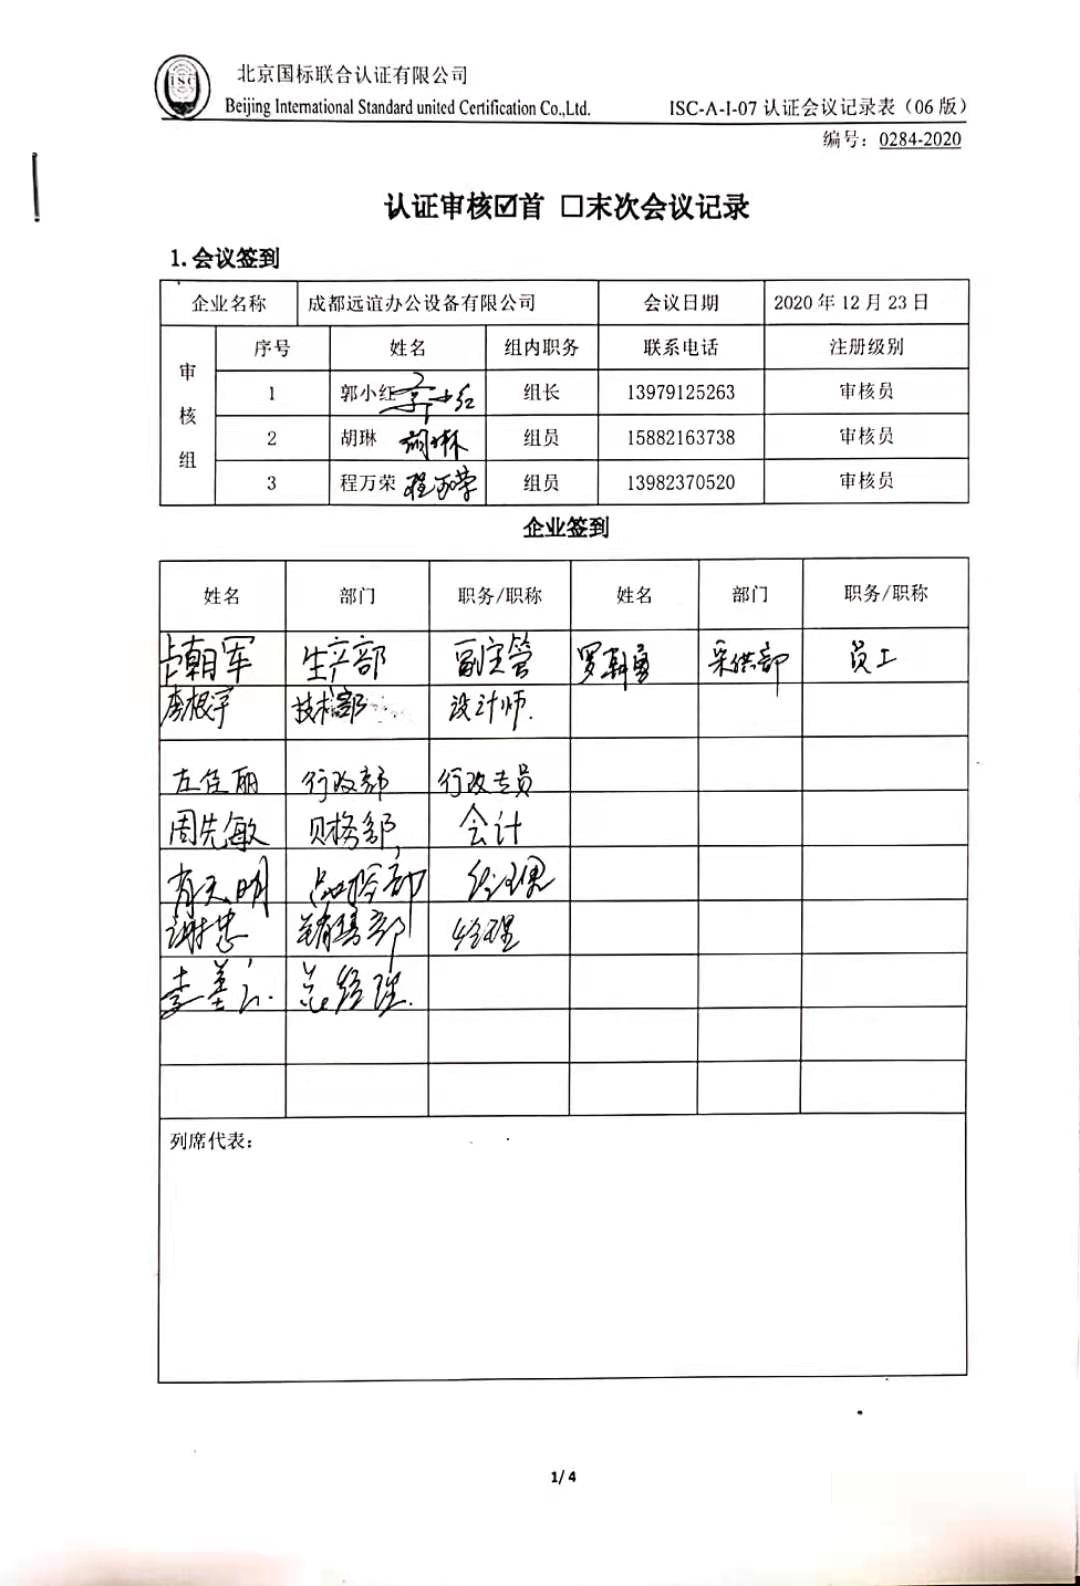 北京国标联合认证有限公司
Beijing International Standard united Certification Co.,Ltd. ISC-A-I-07 认证会议记录表（06 版）
编号：0284-2020
认证审核☑首 □末次会议记录
1. 会议签到
企业名称 成都远谊办公设备有限公司 会议日期 2020 年 12 月 23 日
审核组 序号 姓名 组内职务 联系电话 注册级别
1 郭小红 郭小红 组长 13979125263 审核员
2 胡琳 胡琳 组员 15882163738 审核员
3 程万荣 程万荣 组员 13982370520 审核员
企业签到
姓名 部门 职务/职称 姓名 部门 职务/职称
朝军 生产部 副主管 罗朝勇 采供部 员工
李根宇 技术部 设计师.
左佳丽 行政部 行政专员
周先敏 财务部 会计
肖天明 品检部 经理
谢忠 销售部 经理
李 总经理.
列席代表：
1/ 4